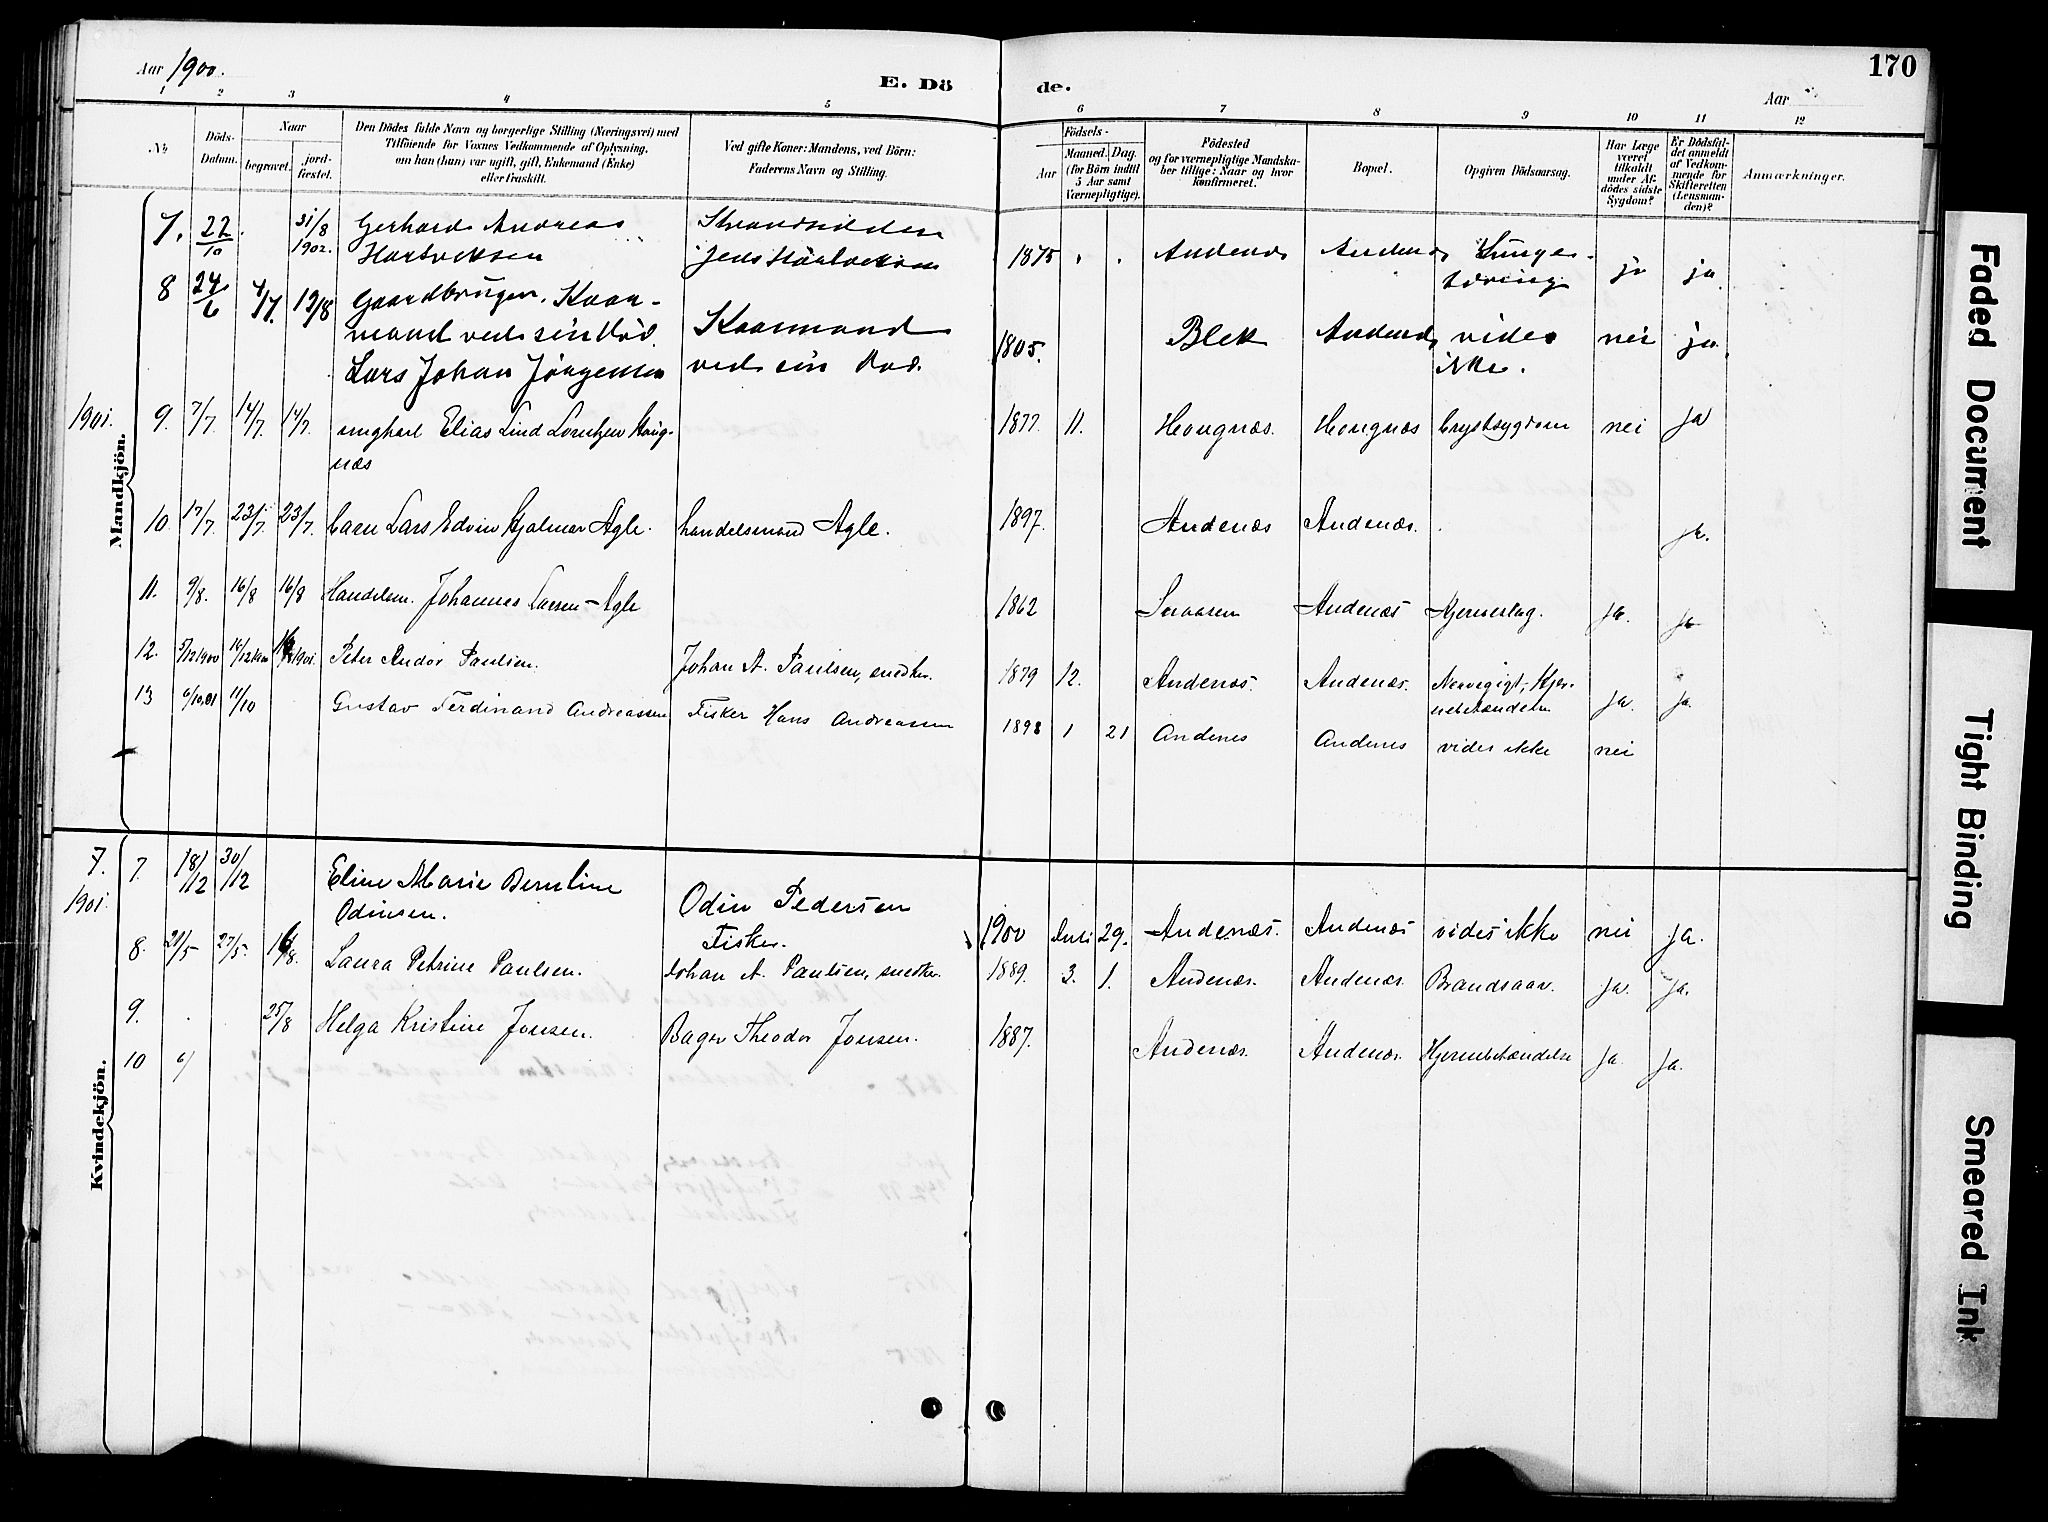 Aar 1900.
E. Dö
de.
Aar
170
1 2 3 4 5 6 7 8 9 10 11 12
No
Döds-
Datum.
Naar
begravet. jord-
fæstet.
Den Dödes fulde Navn og borgerlige Stilling (Næringsvei) med
Tilföiende for Voxnes Vedkommende af Oplysning,
om han (hun) var ugift, gift, Enkemand (Enke)
eller fraskilt.
Ved gifte Koner: Mandens, ved Börn:
Faderens Navn og Stilling.
Födsels-
Aar Maaned. Dag.
(for Börn indtil
5 Aar samt
Værnepligtige).
Födested
og for værnepligtige Mandska-
ber tillige: Naar og hvor
konfirmeret.
Bopæl.
Opgiven Dödsaarsag.
Har Læge
været
tilkaldt
under Af-
dödes sidste
Sygdom?
Er Dödsfal-
det anmeldt
af Vedkom-
mende for
Skifteretten
(Lensman-
den)?
Anmærkninger.
Mandkjön.
7. 22/10 31/8 1902. Gerhard Andreas
Hartviksen
1875 Andenæs Andenæs Lunge-
tæring ja ja
8 24/6 4/7. 12/8 Gaardbruger, Kaar-
mand ved sin Död.
Lars Johan Jörgensen
Kaarmand
ved sin Död.
1805. Blek Andenæs vides
ikke. nei ja.
1901. 9. 7/7 14/7. 14/7. ungkarl Elias Lind Lorentzen Haug-
næs
1877 11. Haugnæs. Haugnæs Brystsygdom nei ja
10. 17/7. 23/7. 23/7. Barn Lars Edvin Hjalmar Agle. handelsmand Agle. 1897. Andenæs Andenæs. ja.
11. 9/8. 16/8 16/8 Handelsm. Johannes Larsen-Agle 1862 Andenæs Hjerneslag. ja. ja
12. 5/12 1900 14/12 1900 1901. Peter Andor Paulsen. Johan A. Paulsen, snedker. 1879 12. Andenæs. Andenæs. Nervegigt, Hjer-
nebetændelse ja. ja.
13 6/10.01 11/10 Gustav Ferdinand Andreassen Fisker Hans Andreassen 1898 1 21 Andenes Andenes vides ikke nei
Kvindekjön.
7. 7. 18/12 30/12 Eline Marie Bernline
Odinsen.
Odin Pedersen
Fisker.
1900 Juli 29. Andenæs. Andenæs vides ikke nei ja.
1901 8. 21/5 27/5. 16/8. Laura Petrine Paulsen. Johan A. Paulsen, snedker. 1889. 3. 1. Andenæs. Andenæs. Brandsaar. ja. ja.
9. 25/8 Helga Kristine Jonsen. Bager Theodor Jonsen. 1887. Andenæs. Andenæs. Hjernebetændelse ja. ja.
10
Faded Document
Tight Binding
Smeared Ink